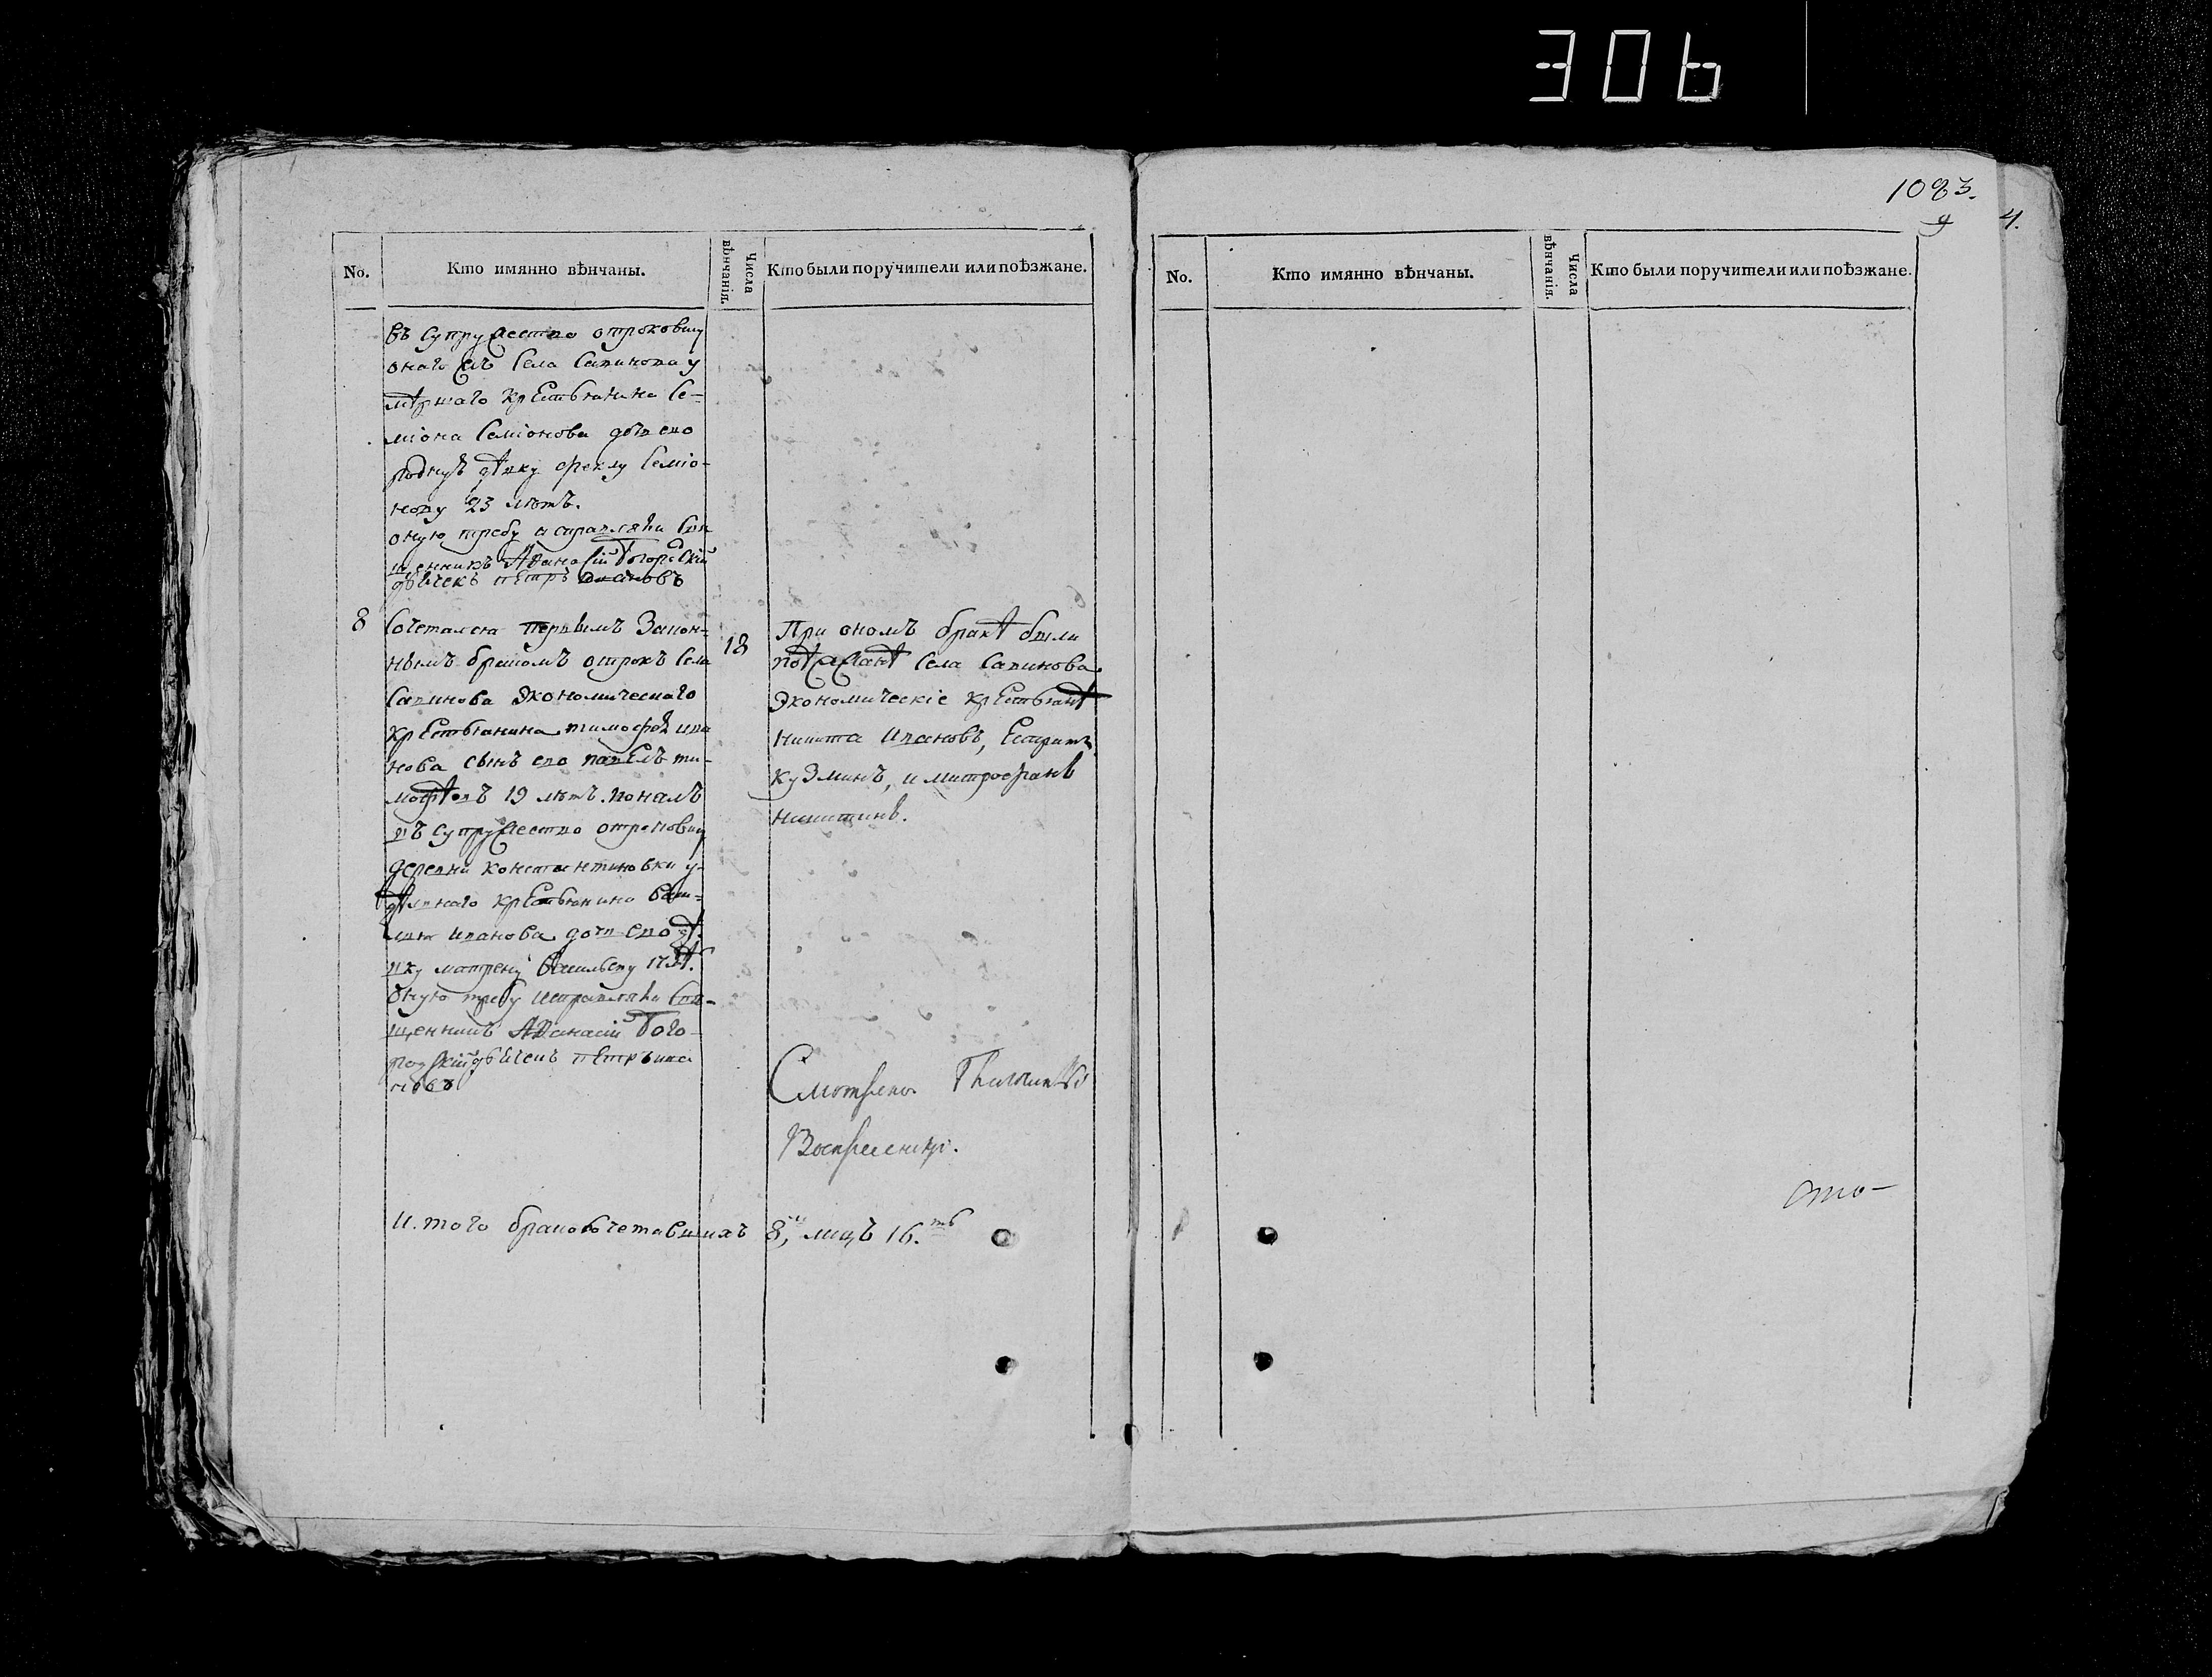 306
1083.
4.
No.
Кто имянно вѣнчаны.
Числа вѣнчанія.
Кто были поручители или поѣзжане.
въ супружество отроковицу
онаго жъ села Савинова у
мѣршаго крестьянина Се-
міона Семіонова дочь ево
родную дѣвку Феклу Семіо-
нову 23 лѣтъ.
оную требу исправляли свя
щенникъ Афанасій Богородскій
дьячекъ Петръ Ивановъ
8
Сочетался первымъ закон-
нымъ бракомъ отрокъ села
Савинова экономическаго
крестьянина Тимофея Ива
нова сынъ ево Павелъ Ти-
мофѣевъ 19 лѣтъ. понялъ
въ супружество отроковицу
деревни Константиновки у-
дѣлнаго крестьянина Васи-
лия Иванова дочь ево дѣ
вку Матрену Васильеву 17 лѣ.
оную требу исправляли свя-
щенникъ Афанасій Бого-
родскій дьячекъ Петръ Ива
новъ
18
При ономъ бракѣ были
поѣзжанѣ села Савинова
экономическіе крестьянѣ
Никита Ивановъ,
Кузминъ, и Митрофанъ
Никитинъ.
Смотрено
И того браковъ сочетавшихъ 8, лицъ 16.
No.
Кто имянно вѣнчаны.
Числа вѣнчанія.
Кто были поручители или поѣзжане.